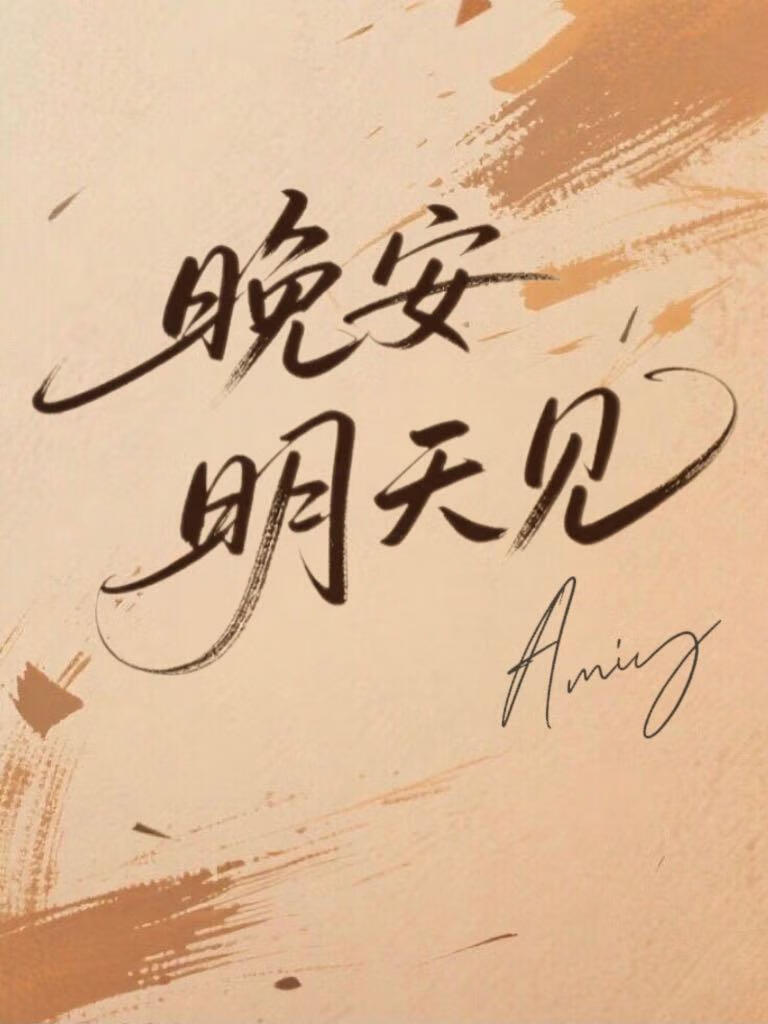 晚安
明天见
Amiy